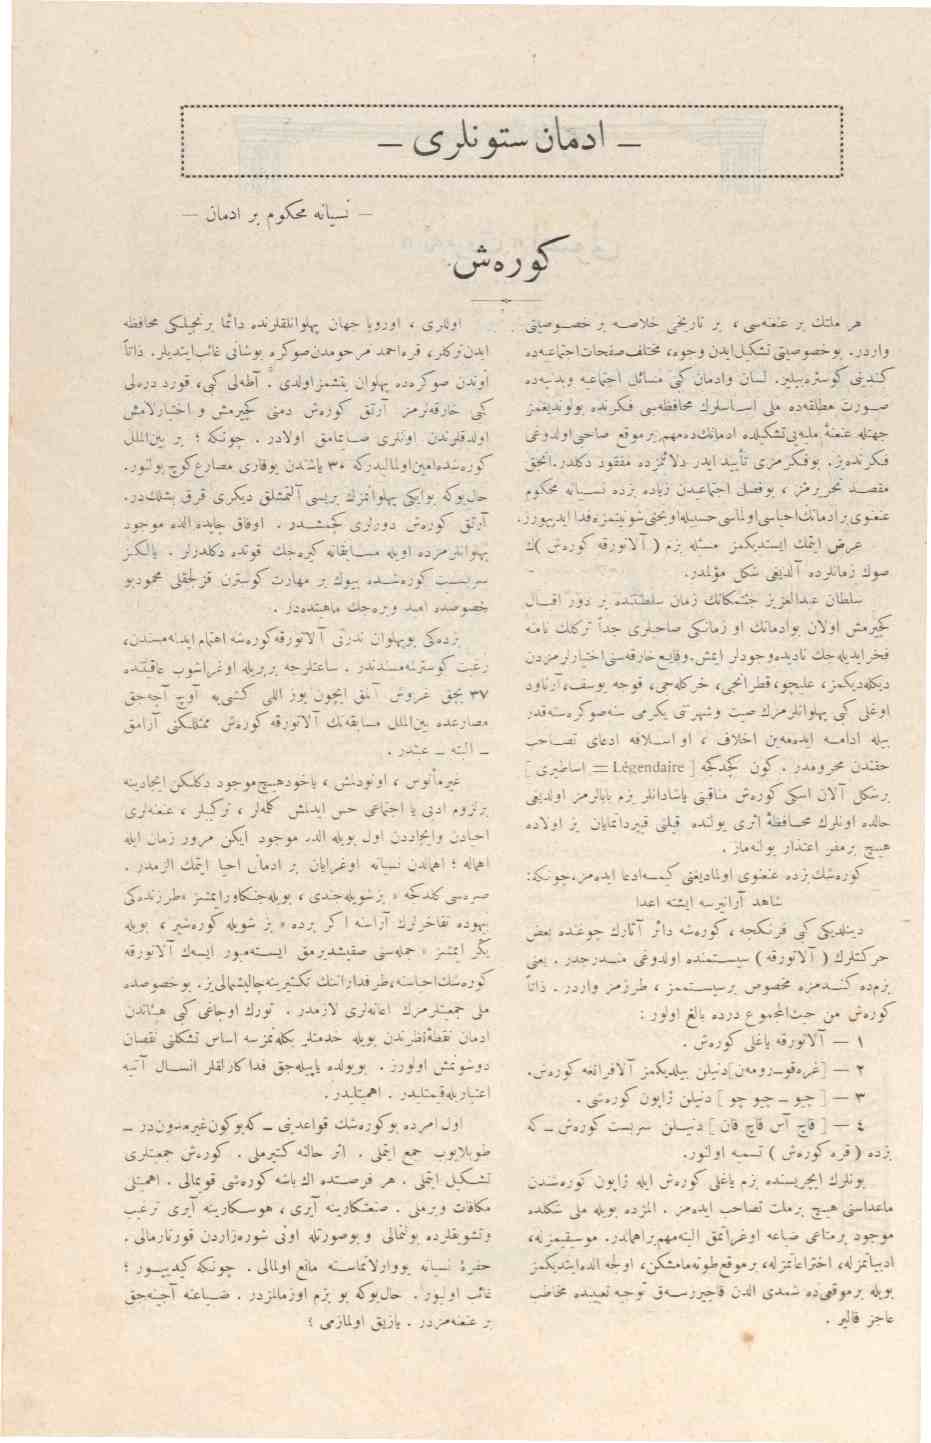 — ادمان ستونلری —
— نسیانه محکوم بر ادمان —
کوره‌ش
هر ملتك بر عنعنه‌سی ، بر تاریخی خلاصه بر خصوصیتی
واردر. بوخصوصیتی تشکیل‌ایدن وجوه، مختلف‌صفحات‌اجتماعیه‌ده
کندینی کوستره‌بیلیر. لسان وادمان کبی مسائل اجتماعیه وبدنیه‌ده
صورت مطلقه‌ده ملی اساسلرك محافظه‌سی فکرنده بولوندیغمز
جهتله عنعنهٔ ملیه‌یی‌تشکیلده ادمانك‌ده‌مهم‌برموقع صاحبی‌اولدوغی
فکرنده‌یز. بوفکرمزی تأیید ایدر دلائلمزده مفقود دکلدر.انجق
مقصد تحریرمز ، بوفصل اجتماعیدن زیاده بزده نسیانه محکوم
عنعنوی برادمانك‌احیاسی‌اولماسی‌حسبیله‌اوبحثی‌شونیتمزه‌فدا ایدییورز.
عرض ایتمك ایستدیکمز مسئله بزم ( آلاتورقه کوره‌ش )ك
صوك زمانلرده آلدیغی شکل مؤلمدر.
سلطان عبدالعزیز جنتمکانك زمان سلطنتنده بر دور اقبال
کچیرمش اولان بوادمانك او زمانکی صاحبلری جداً ترکلك نامنه
فخرایدیله‌جك نادیده‌وجودلر ایمش.وقایع خارقه‌سنی‌اختیارلرمزدن
دیکله‌دیکمز، علیچو،قطرانجی، خرکله‌جی، قوجه یوسف،آرناود
اوغلی کبی پهلوانلرمزك صیت وشهرتنی یکرمی سنه‌صوکره‌سنه‌قدر
بیله ادامه ایده‌مه‌ین اخلاف ، او اسلافه ادعای تصاحب
حقندن محرومدر. کون کچدکجه [ Légendaire = اساطیری ]
برشکل آلان اسکی کوره‌ش مناقبی یاشادانلر بزم بابالرمز اولدیغی
حالده اونلرك محافظهٔ اثری یولنده قیلنی قیپرداتمایان بز اولاده
هیچ برمفر اعتذار بولنه‌ماز .
کوره‌شك‌بزده عنعنوی اولمادیغنی کیمسه‌ادعا ایده‌مز.چونکه:
شاهد آرانیرسه ایشته اعدا
دینلدیکی کبی فرنکجه ، کوره‌شه دائر آثارك جوغنده بعض
حرکتلرك ( آلاتورقه ) سیستمنده اولدوغی مندرجدر. یعنی
بزمده کندمزه مخصوص برسیستممز ، طرزمز واردر. ذاتاً
کوره‌ش من حیث‌المجموع درده بالغ اولور :
١ — آلاتورقه یاغلی کوره‌ش .
٢ — [غره‌قو-رومه‌ن]دنیلن بیلدیکمز آلافرانغه کوره‌ش.
٣ — [ جیو - جیو چو ] دنیلن ژاپون کوره‌شی .
٤ — [ قاچ آس قاچ قان ] دنیلن سربست کوره‌ش - که
بزده ( قره کوره‌ش ) تسمیه اولنور.
بونلرك ایچریسنده بزم یاغلی کوره‌ش ایله ژاپون کوره‌شندن
ماعداسنی هیچ برملت تصاحب ایده‌مز . المزده بویله ملی شکلده
موجود برمتاعی ضیاعه اوغراتمق البته‌مهم‌براهمالدر. موسیقیمزله،
ادبیاتمزله، اختراعاتمزله، برموقع‌طوته‌مامشکن، اولجه الده‌ایتدیکمز
بویله برموقعی‌ده شمدی الدن قاچیررسه‌ق توجیه تعییبده مخاطب
عاجز قالیر .
اوللری ، اوروپا جهان پهلوانلقلرنده دائما برنجیلکی محافظه
ایدن‌ترکلر، قره‌احمد مرحومدن‌صوکره بوشانی غائب‌ایتدیلر. ذاتاً
اوندن صوکره‌ده پهلوان یتشمزاولدی . آطه‌لی کبی، قورد دره‌لی
کبی خارقه‌لرمز آرتق کوره‌ش دمنی کچیرمش و اختیارلامش
اولدقلرندن اونلری صایمامق اولادر . چونکه ؛ بر بین‌الملل
کوره‌شده‌امین‌اولمالیدرکه ٣٥ یاشندن یوقاری مصارع‌کوچ بولنور.
حال‌بوکه بوایکی پهلوانمزك بریسی آلتمشلق دیکری قرق بشلك‌در.
آرتق کوره‌ش دورلری کچمشدر . اوفاق چاپده الده موجود
پهلوانلرمزده اویله مسابقانه کیره‌جك قوتده دکلدرلر . یالکز
سربست کوره‌شده بیوك بر مهارت کوسترن قزلجقلی محمودبو
خصوصده امید ویره‌جك ماهیتده‌در .
بزده‌کی بوپهلوان ندرتی آلاتورقه‌کوره‌شه اهتمام ایدلمه‌مسندن،
رغبت کوسترلمه‌مسندندر . ساعتلرجه بربریله اوغراشوب عاقبتنده
٣٧ بچق غروش آلمق ایچون یوز اللی کشی‌یه آووچ آچه‌جق
مصارعده بین‌الملل مسابقه‌لك آلاتورقه کوره‌ش ممثللکنی آرامق
- البته - عبثدر .
غیرمأنوس ، اونودلمش ، یاخودهیچ‌موجود دکلکن ایجادینه
برلزوم ادبی یا اجتماعی حس ایدلمش کلمه‌لر ، ترکیبلر ، عنعنه‌لری
احیادن وایجاددن اول بویله الدر موجود ایکن مرور زمان ایله
اهماله ؛ اهمالدن نسیانه اوغرایان بر ادمانی احیا ایتمك الزمدر .
صره‌سی کلدکجه « بزشویله‌جندی ، بویله‌جنکاورایمشز »طرزنده‌کی
بیهوده تفاخرلرك آراسنه اکر برده « بز شویله کوره‌شیر ، بویله
یکر ایمشز » جمله‌سنی صقیشدیرمق ایستمیورسه‌ك آلاتورقه
کوره‌شك‌احیاسنه،طرفدارانك تکثیرینه‌چالیشمالی‌یز. بوخصوصده
ملی جمعیتلرمزك اعانه‌لری لازمدر. تورك اوجاغی کبی هیئاتدن
ادمان نقطهٔ‌نظرندن بویله خدمتلر بکله‌نمزسه اساس تشکلنی نقصان
دوشونمش اولورز. بویولده یاپیله‌جق فداکارلقلر انسال آتیه
اعتباریله‌قیمتلیدر. اهمیتلیدر.
اول امرده بوکوره‌شك قواعدینی - که‌بوکون‌غیرمدون‌در -
طوپلایوب جمع ایتملی . اثر حالنه کتیرملی . کوره‌ش جمعیتلری
تشکیل ایتملی . هر فرصتده اك باشه کوره‌شی قویمالی . اهمیتلی
مکافات ویرملی . صنعتکارینه آیری ، هوسکارینه آیری ترغیب
وتشویقلرده بولنمالی و بوصورتله اونی شوره‌زاردن قورتارمالی .
حفرهٔ نسیانه یووارلانماسنه مانع اولمالی . چونکه کیدییور ؛
غائب اولیور. حال‌بوکه بو بزم اوزمالمزدر. ضیاعنه آجینه‌جق
بر عنعنه‌مزدر . یازیق اولمازمی ؟